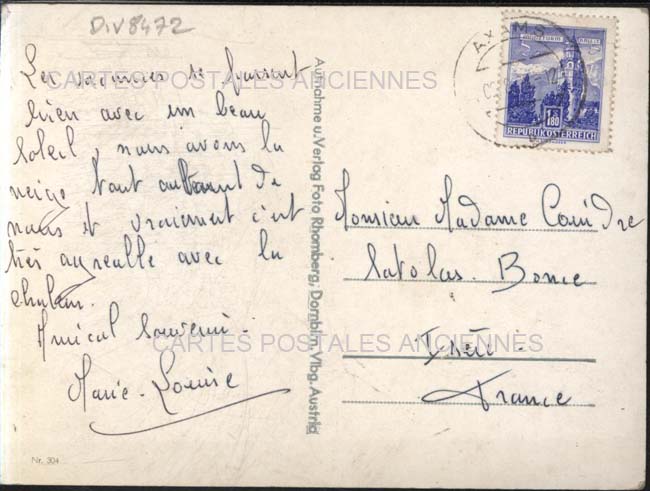 DIV8472
Les vacances se passent
bien avec un beau
soleil, nous avons la
neige tout autour de
nous et vraiment c'est
très agréable avec la
chaleur.
Amical souvenir.
Marie-Louise
Nr. 304
Aufnahme u. Verlag Foto Rhomberg, Dornbirn, Vlbg. Austria
AXAMS
S 1.80
REPUBLIK ÖSTERREICH
Monsieur Madame Coindre
Satolas. Bonce
Isère.
France
CARTES POSTALES ANCIENNES
CARTES POSTALES ANCIENNES